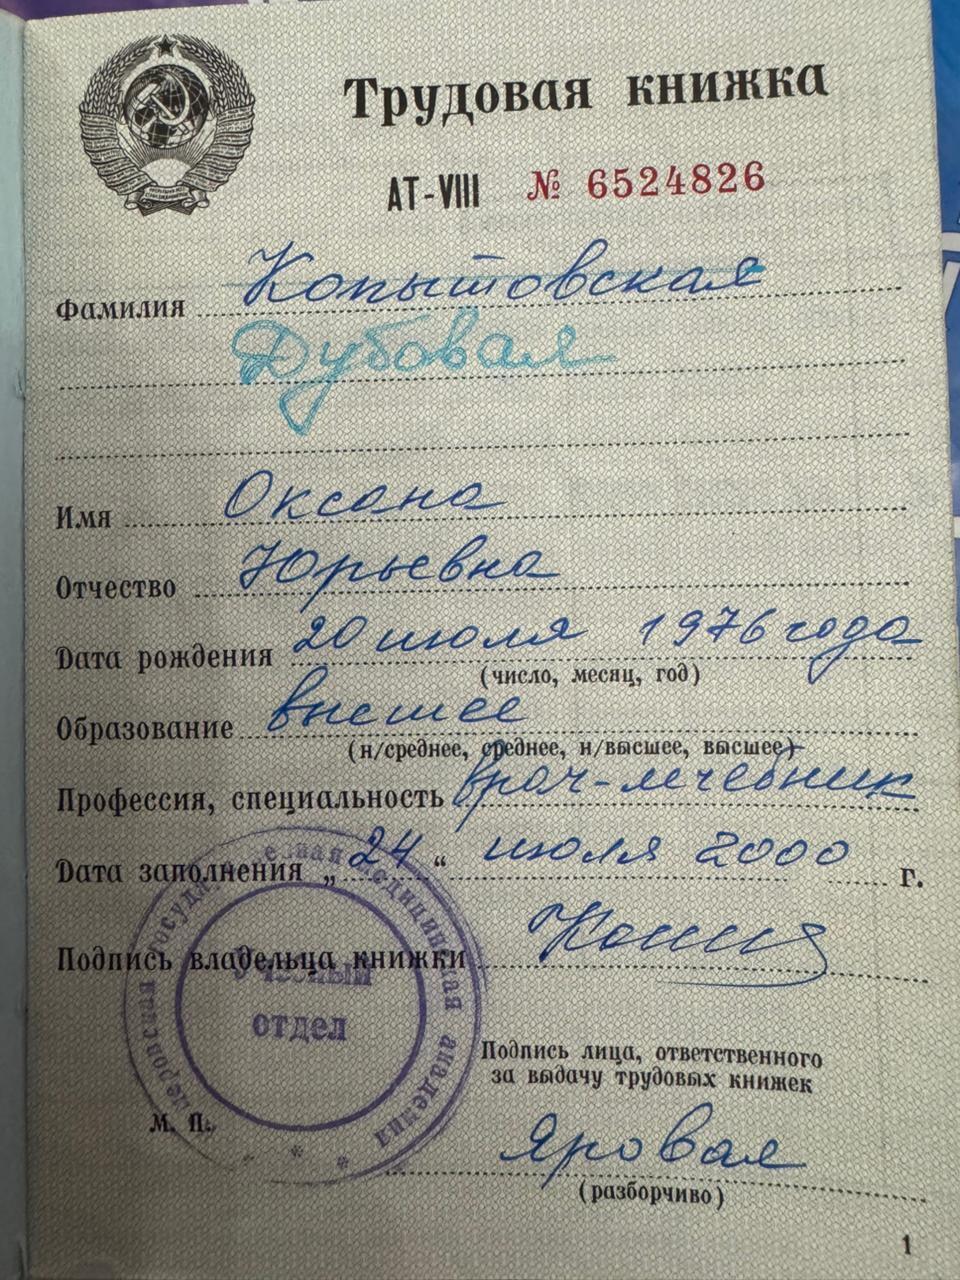 Трудовая книжка
АТ-VIII № 6524826
Фамилия Копытовская
Дубовая
Имя Оксана
Отчество Юрьевна
Дата рождения 20 июля 1976 года
(число, месяц, год)
Образование высшее
(н/среднее, среднее, н/высшее, высшее)
Профессия, специальность врач-лечебник
Дата заполнения „24“ июля 2000 г.
Подпись владельца книжки
Учебный
отдел
медицинская академия
Подпись лица, ответственного
за выдачу трудовых книжек
М. П.
Яровая
(разборчиво)
1